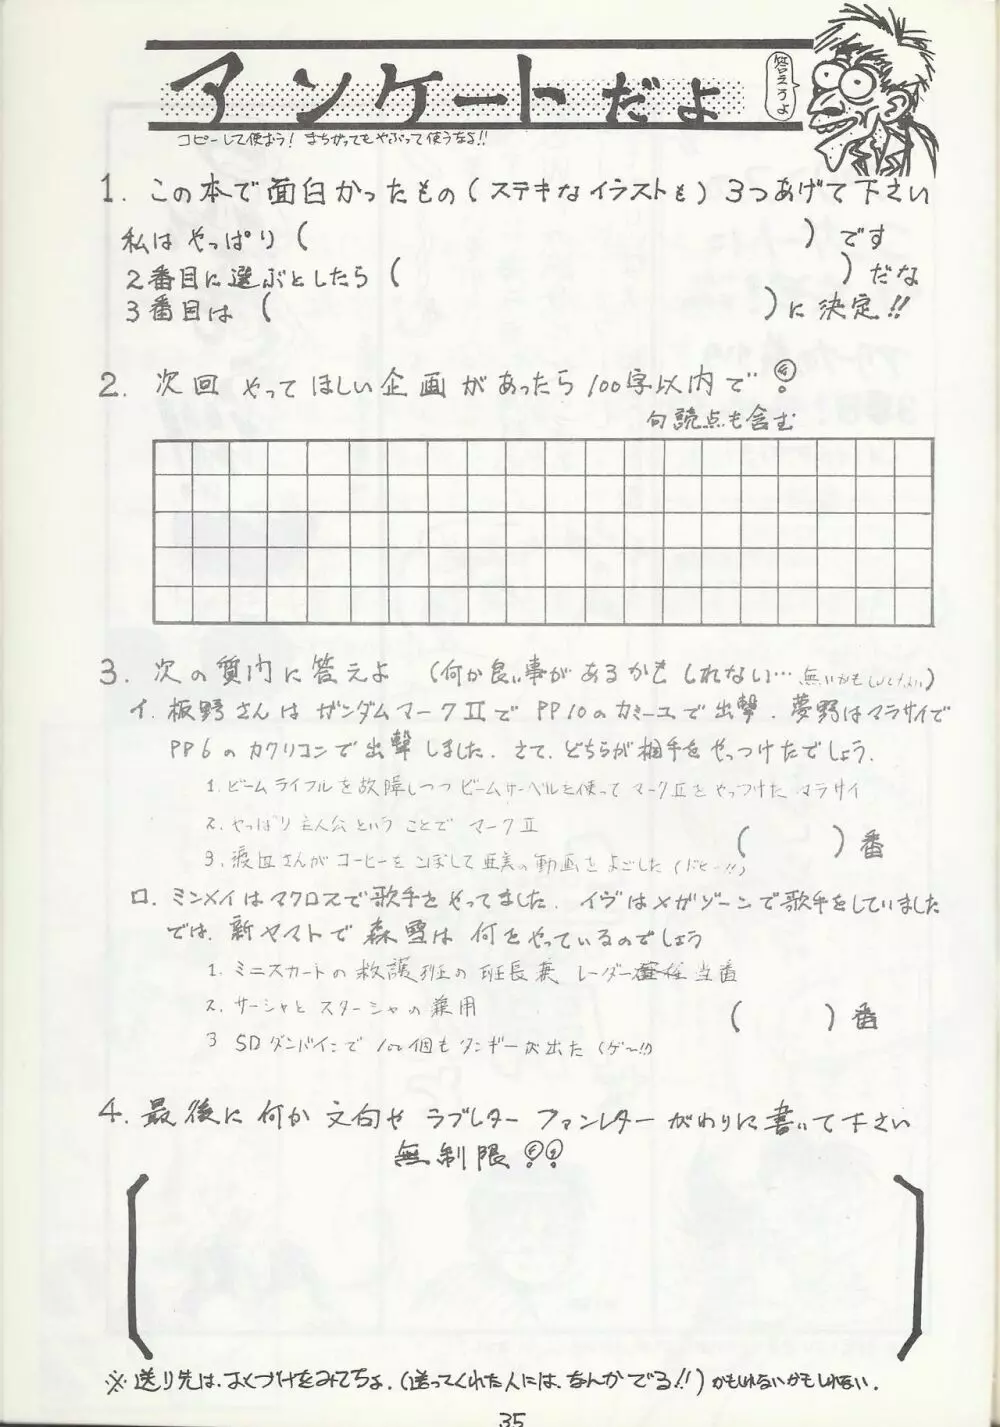 アンケートだよ
答えろよ
コピーして使おう! まちがってもやぶって使うなよ!!
1. この本で面白かったもの(ステキなイラストも) 3つあげて下さい
私はやっぱり( )です
2番目に選ぶとしたら( )だな
3番目は( )に決定!!
2. 次回やってほしい企画があったら100字以内で
句読点も含む
3. 次の質問に答えよ (何か良い事があるかもしれない…無いかもしれない)
イ. 板野さんはガンダムマークⅡでPP10のカミーユで出撃. 夢野はマラサイで
PP6のカクリコンで出撃しました. さて, どちらが相手をやっつけたでしょう.
1. ビームライフルを故障しつつビームサーベルを使ってマークⅡをやっつけたマラサイ
2. やっぱり主人公ということでマークⅡ
3. 渡辺さんがコーヒーをこぼして亜美の動画をよごした(ドヒー!!)
( )番
ロ. ミンメイはマクロスで歌手をやってました. イヴはメガゾーンで歌手をしていました
では, 新ヤマトで森雪は何をやっているのでしょう
1. ミニスカートの救護班の班長兼レーダー担当番
2. サーシャとスターシャの兼用
3 SDダンバインで100個もダンギーが出た(ゲ〜!!)
( )番
4. 最後に何か文句やラブレターファンレターがわりに書いて下さい
無制限
※送り先は, おくづけをみてちょ. (送ってくれた人には, なんかでる!!) かもしれないかもしれない.
35